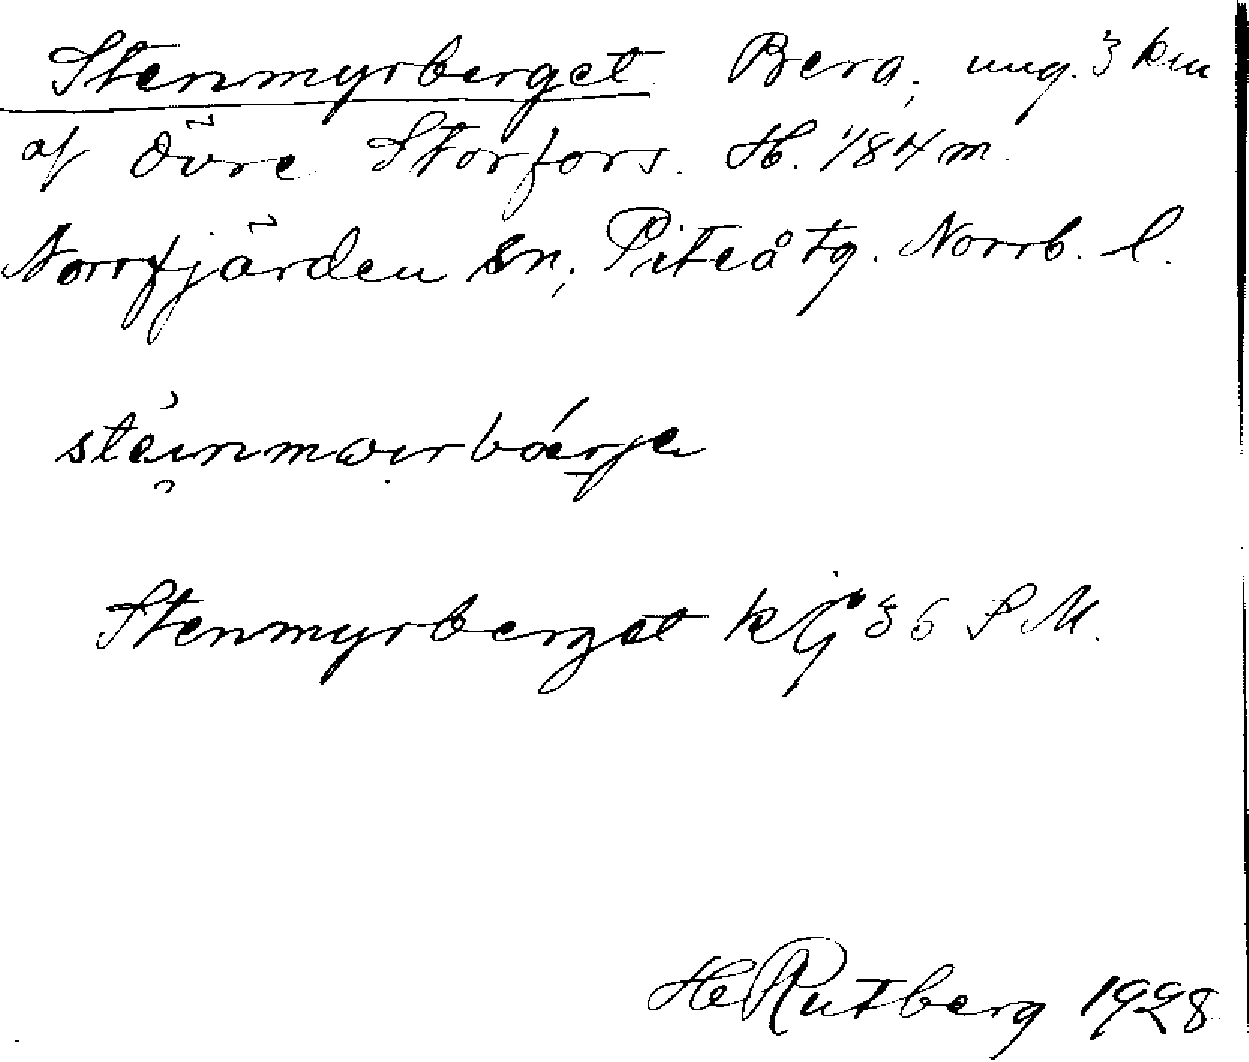 Stenmyrberget Berg, ung. 3 km
af Övre Storfors. H. 184 m.
Norrfjärden sn, Piteå tg. Norrb. l.
Stenmyrberget 36 S M.
H Rutberg 1928